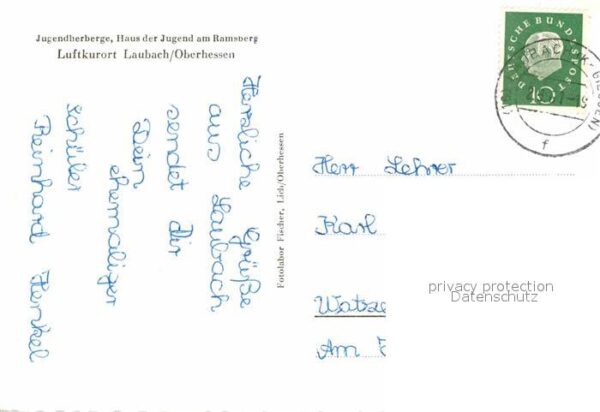 Jugendherberge, Haus der Jugend am Ramsberg
Luftkurort Laubach/Oberhessen
Herzliche Grüße
aus Laubach
sendet dir
Dein
ehemaliger
Schüler
Reinhard Henkel
Fotolabor Fischer, Lich/Oberhessen
DEUTSCHE BUNDESPOST
10
GIESSEN)
f
Herr Lehrer
Karl
Am
privacy protection
Datenschutz